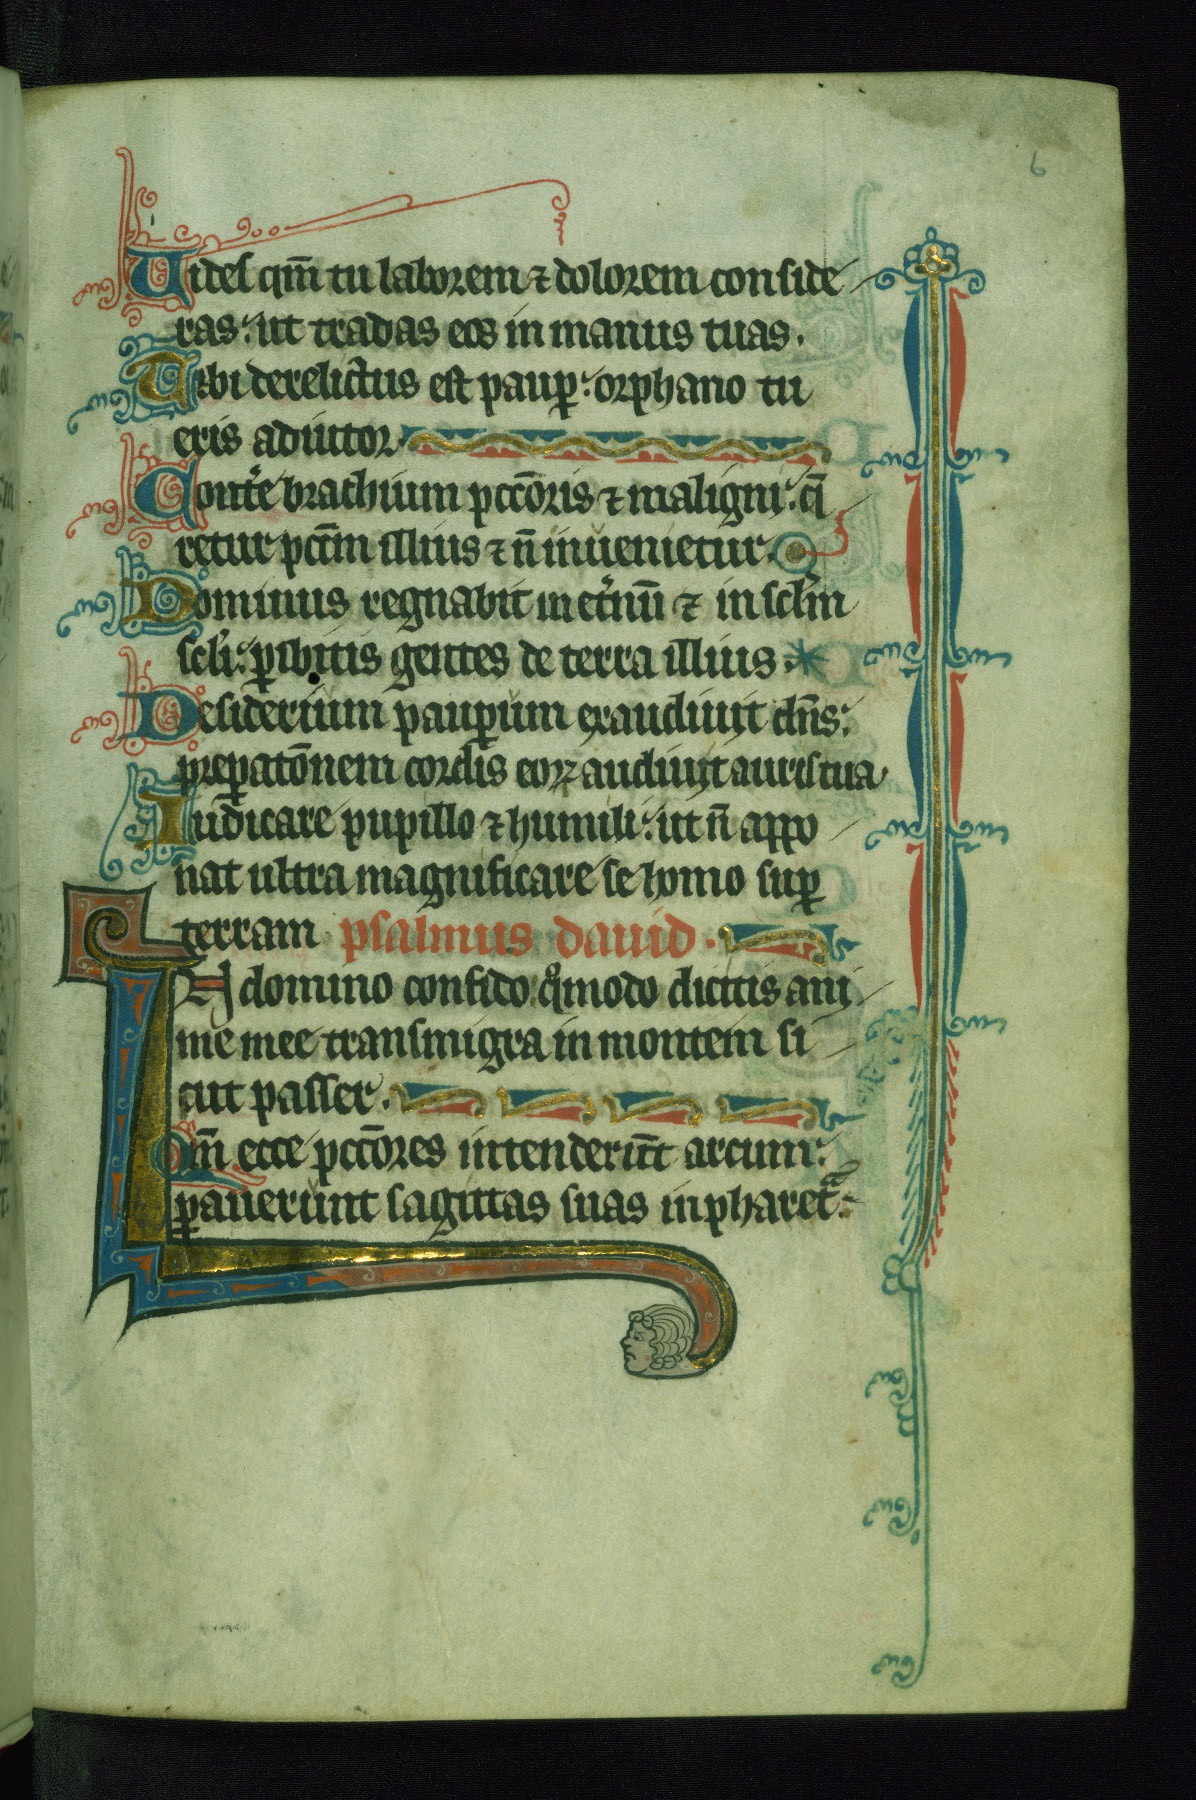 6
Uides qm̄ tu laborem ⁊ dolorem conside
ras: ut tradas eos in manus tuas.
Tibi derelictus est paup̲: orphano tu
eris adiutor
Cont̾e brachium pcc̄oris ⁊ maligni: q̄
retur pcc̄m illius ⁊ n̄ inuenietur.
Dominus regnabit in et̾nū ⁊ in sclm̄
scl̄i: ꝑibitis gentes de terra illius.
Desiderium pauꝑum exaudiuit dn̄s:
preꝑatōnem cordis eoꝝ audiuit auris tua
Iudicare pupillo ⁊ humili: ut n̄ appo
nat ultra magnificare se homo suꝑ
terram psalmus dauid.
IN domino confido: qͦmodo dicitis ani
me mee transmigra in montem si
cut passer.
Qm̄ ecce pcc̄ores intenderūt arcum:
ꝑauerunt sagittas suas in pharetᵃ: